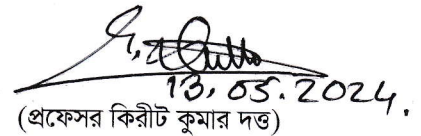 13.05.2024.
(প্রফেসর কিরীট কুমার দত্ত)